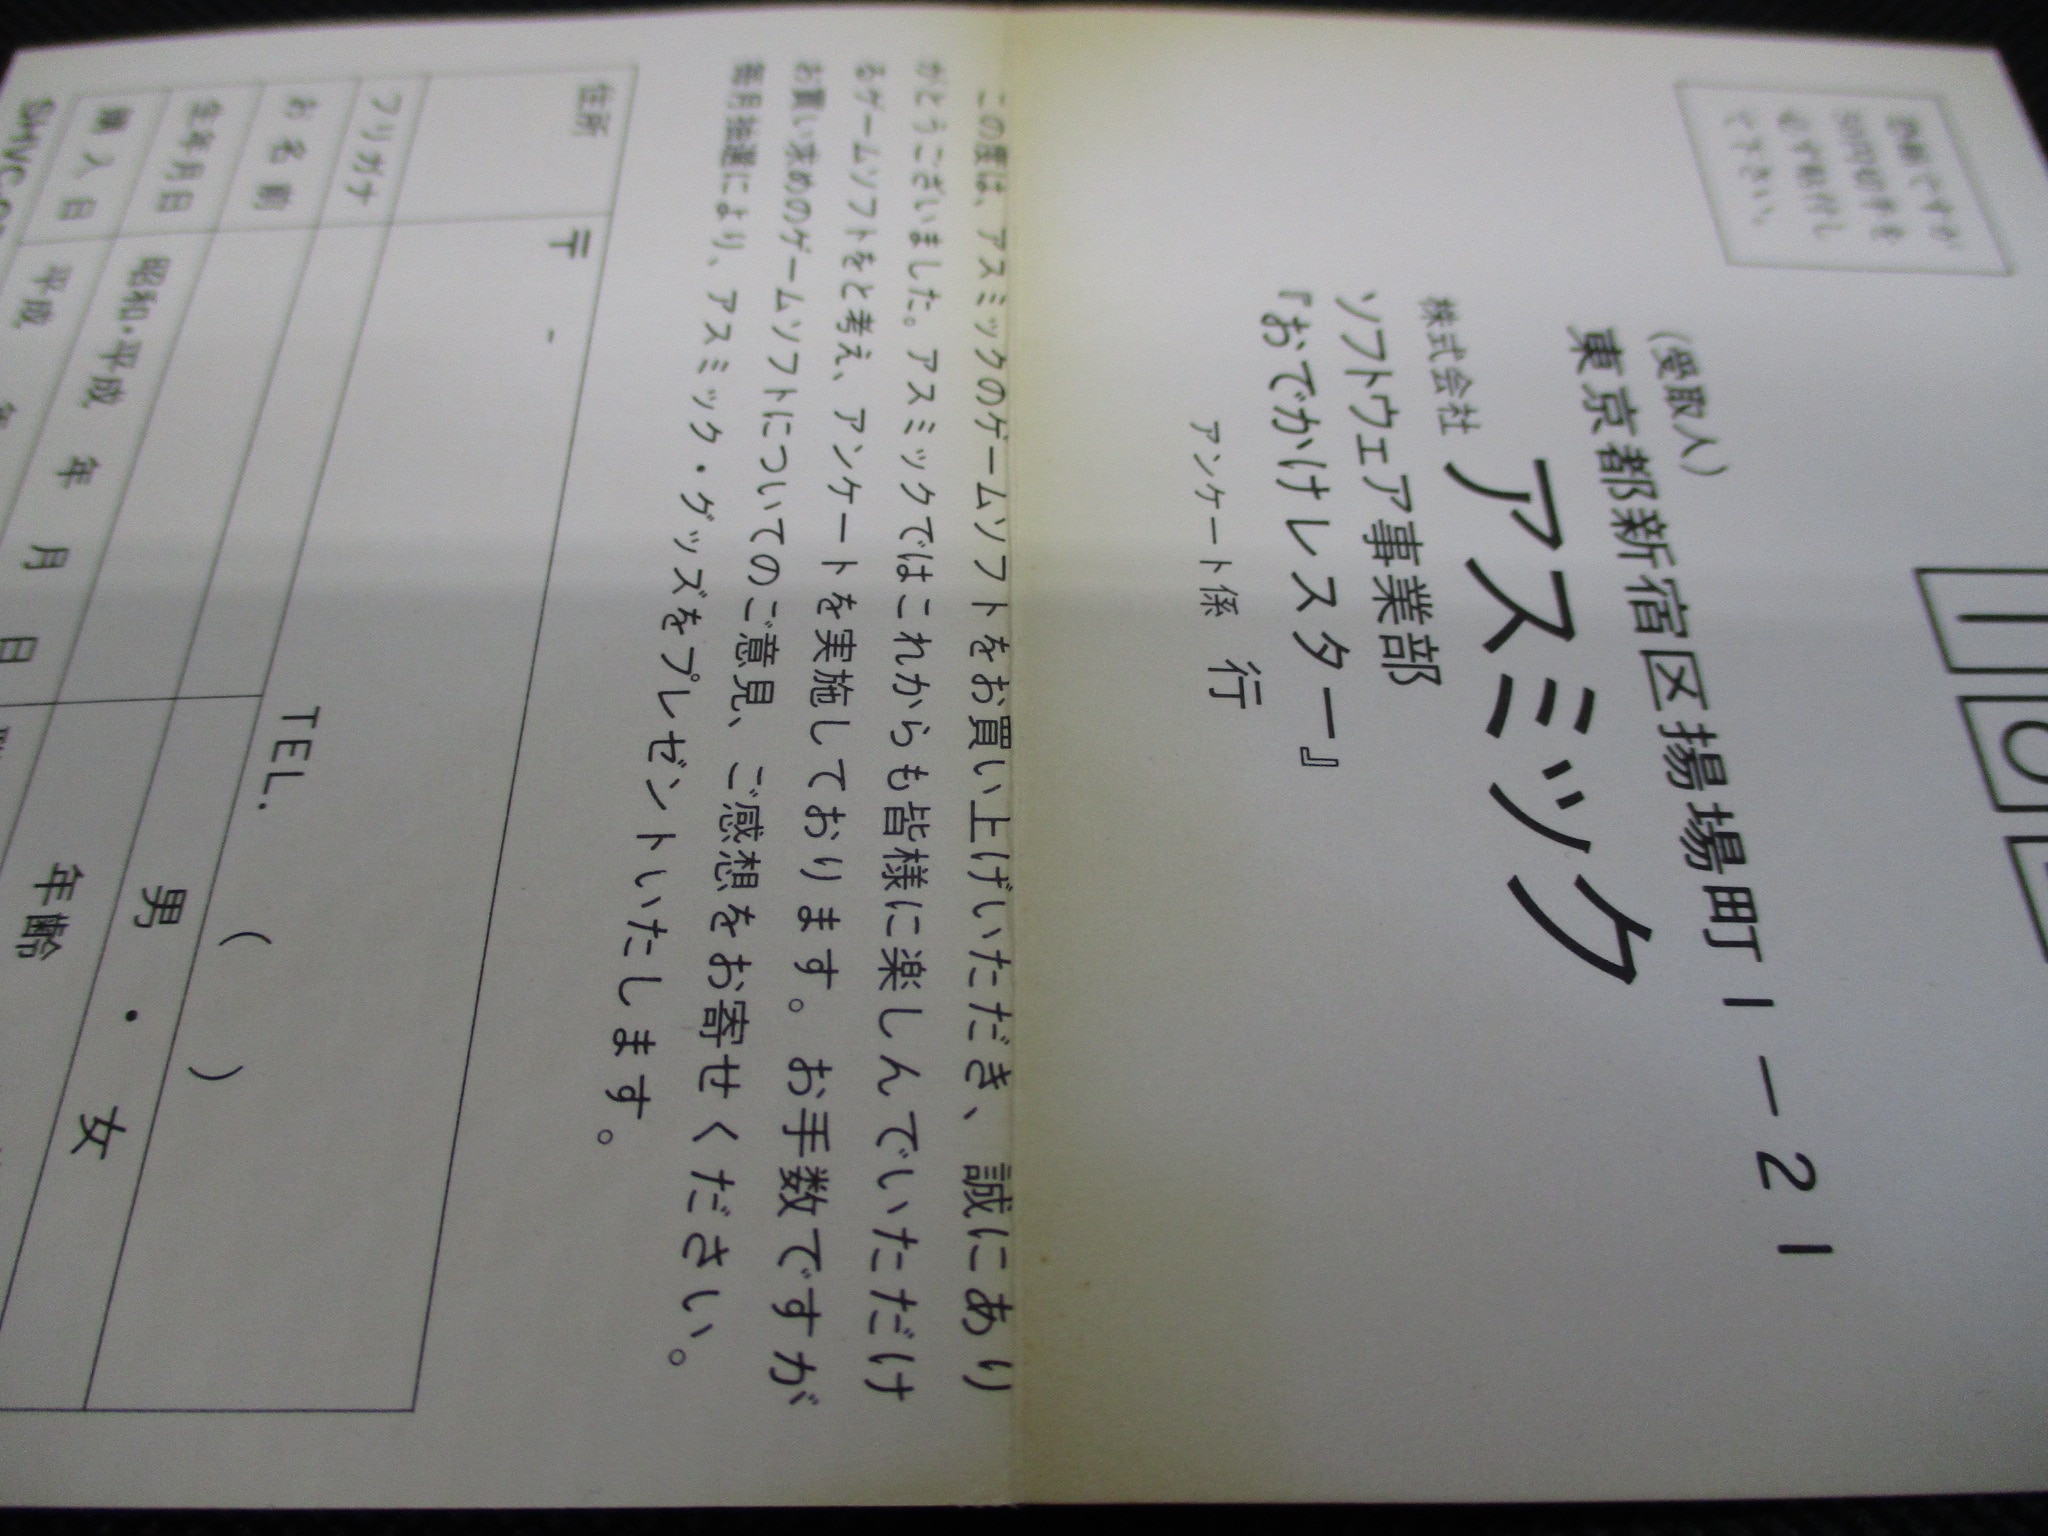 恐縮ですが
50円切手を
必ず貼付し
て下さい。
1 0
（受取人）
東京都新宿区揚場町1－21
株式会社 アスミック
ソフトウェア事業部
『おでかけレスター』
アンケート係 行
この度は、アスミックのゲームソフトをお買い上げいただき、誠にあり
がとうございました。アスミックではこれからも皆様に楽しんでいただけ
るゲームソフトをと考え、アンケートを実施しております。お手数ですが
お買い求めのゲームソフトについてのご意見、ご感想をお寄せください。
毎月抽選により、アスミック・グッズをプレゼントいたします。
住所 〒 -
TEL. （ ）
フリガナ
お名前 男・女
生年月日 昭和・平成 年 月 日 年齢
購入日 平成 年
SHVC